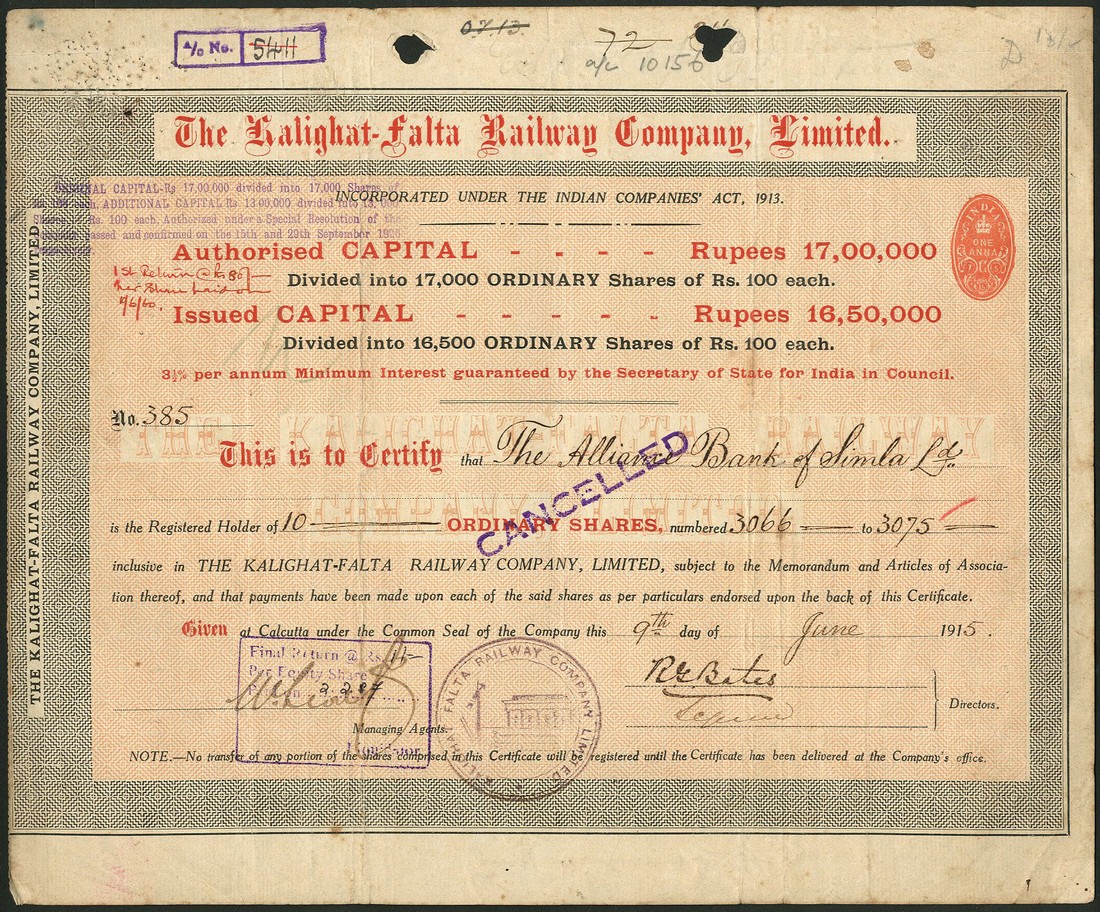 A/c No. 5411
0713
72
a/c 10156
D
The Kalighat-Falta Railway Company, Limited.
ORIGINAL CAPITAL-Rs 17,00,000 divided into 17,000 Shares of
Rs. 100 each. ADDITIONAL CAPITAL Rs 13,00,000 divided into 13,000
Shares Rs. 100 each. Authorized under a Special Resolution of the
passed and confirmed on the 15th and 29th September
INCORPORATED UNDER THE INDIAN COMPANIES' ACT, 1913.
INDIA
ONE ANNA
Authorised CAPITAL - - - - Rupees 17,00,000
Divided into 17,000 ORDINARY Shares of Rs. 100 each.
1st Return @ Rs 86/-
Per Share paid on
8/6/60.
Issued CAPITAL - - - - - Rupees 16,50,000
Divided into 16,500 ORDINARY Shares of Rs. 100 each.
3½% per annum Minimum Interest guaranteed by the Secretary of State for India in Council.
No. 385
THE KALIGHAT-FALTA RAILWAY
COMPANY LIMITED
This is to Certify that The Alliance Bank of Simla Ld.
CANCELLED
is the Registered Holder of 10 ORDINARY SHARES, numbered 3066 to 3075
inclusive in THE KALIGHAT-FALTA RAILWAY COMPANY, LIMITED, subject to the Memorandum and Articles of Associa-
tion thereof, and that payments have been made upon each of the said shares as per particulars endorsed upon the back of this Certificate.
Given at Calcutta under the Common Seal of the Company this 9th day of June 1915.
Final Return @ Rs.
Per Equity Share
Liquidator
KALIGHAT FALTA RAILWAY COMPANY LIMITED
R G Bates
Directors.
Managing Agents.
NOTE.—No transfer of any portion of the shares comprised in this Certificate will be registered until the Certificate has been delivered at the Company's office.
THE KALIGHAT-FALTA RAILWAY COMPANY, LIMITED